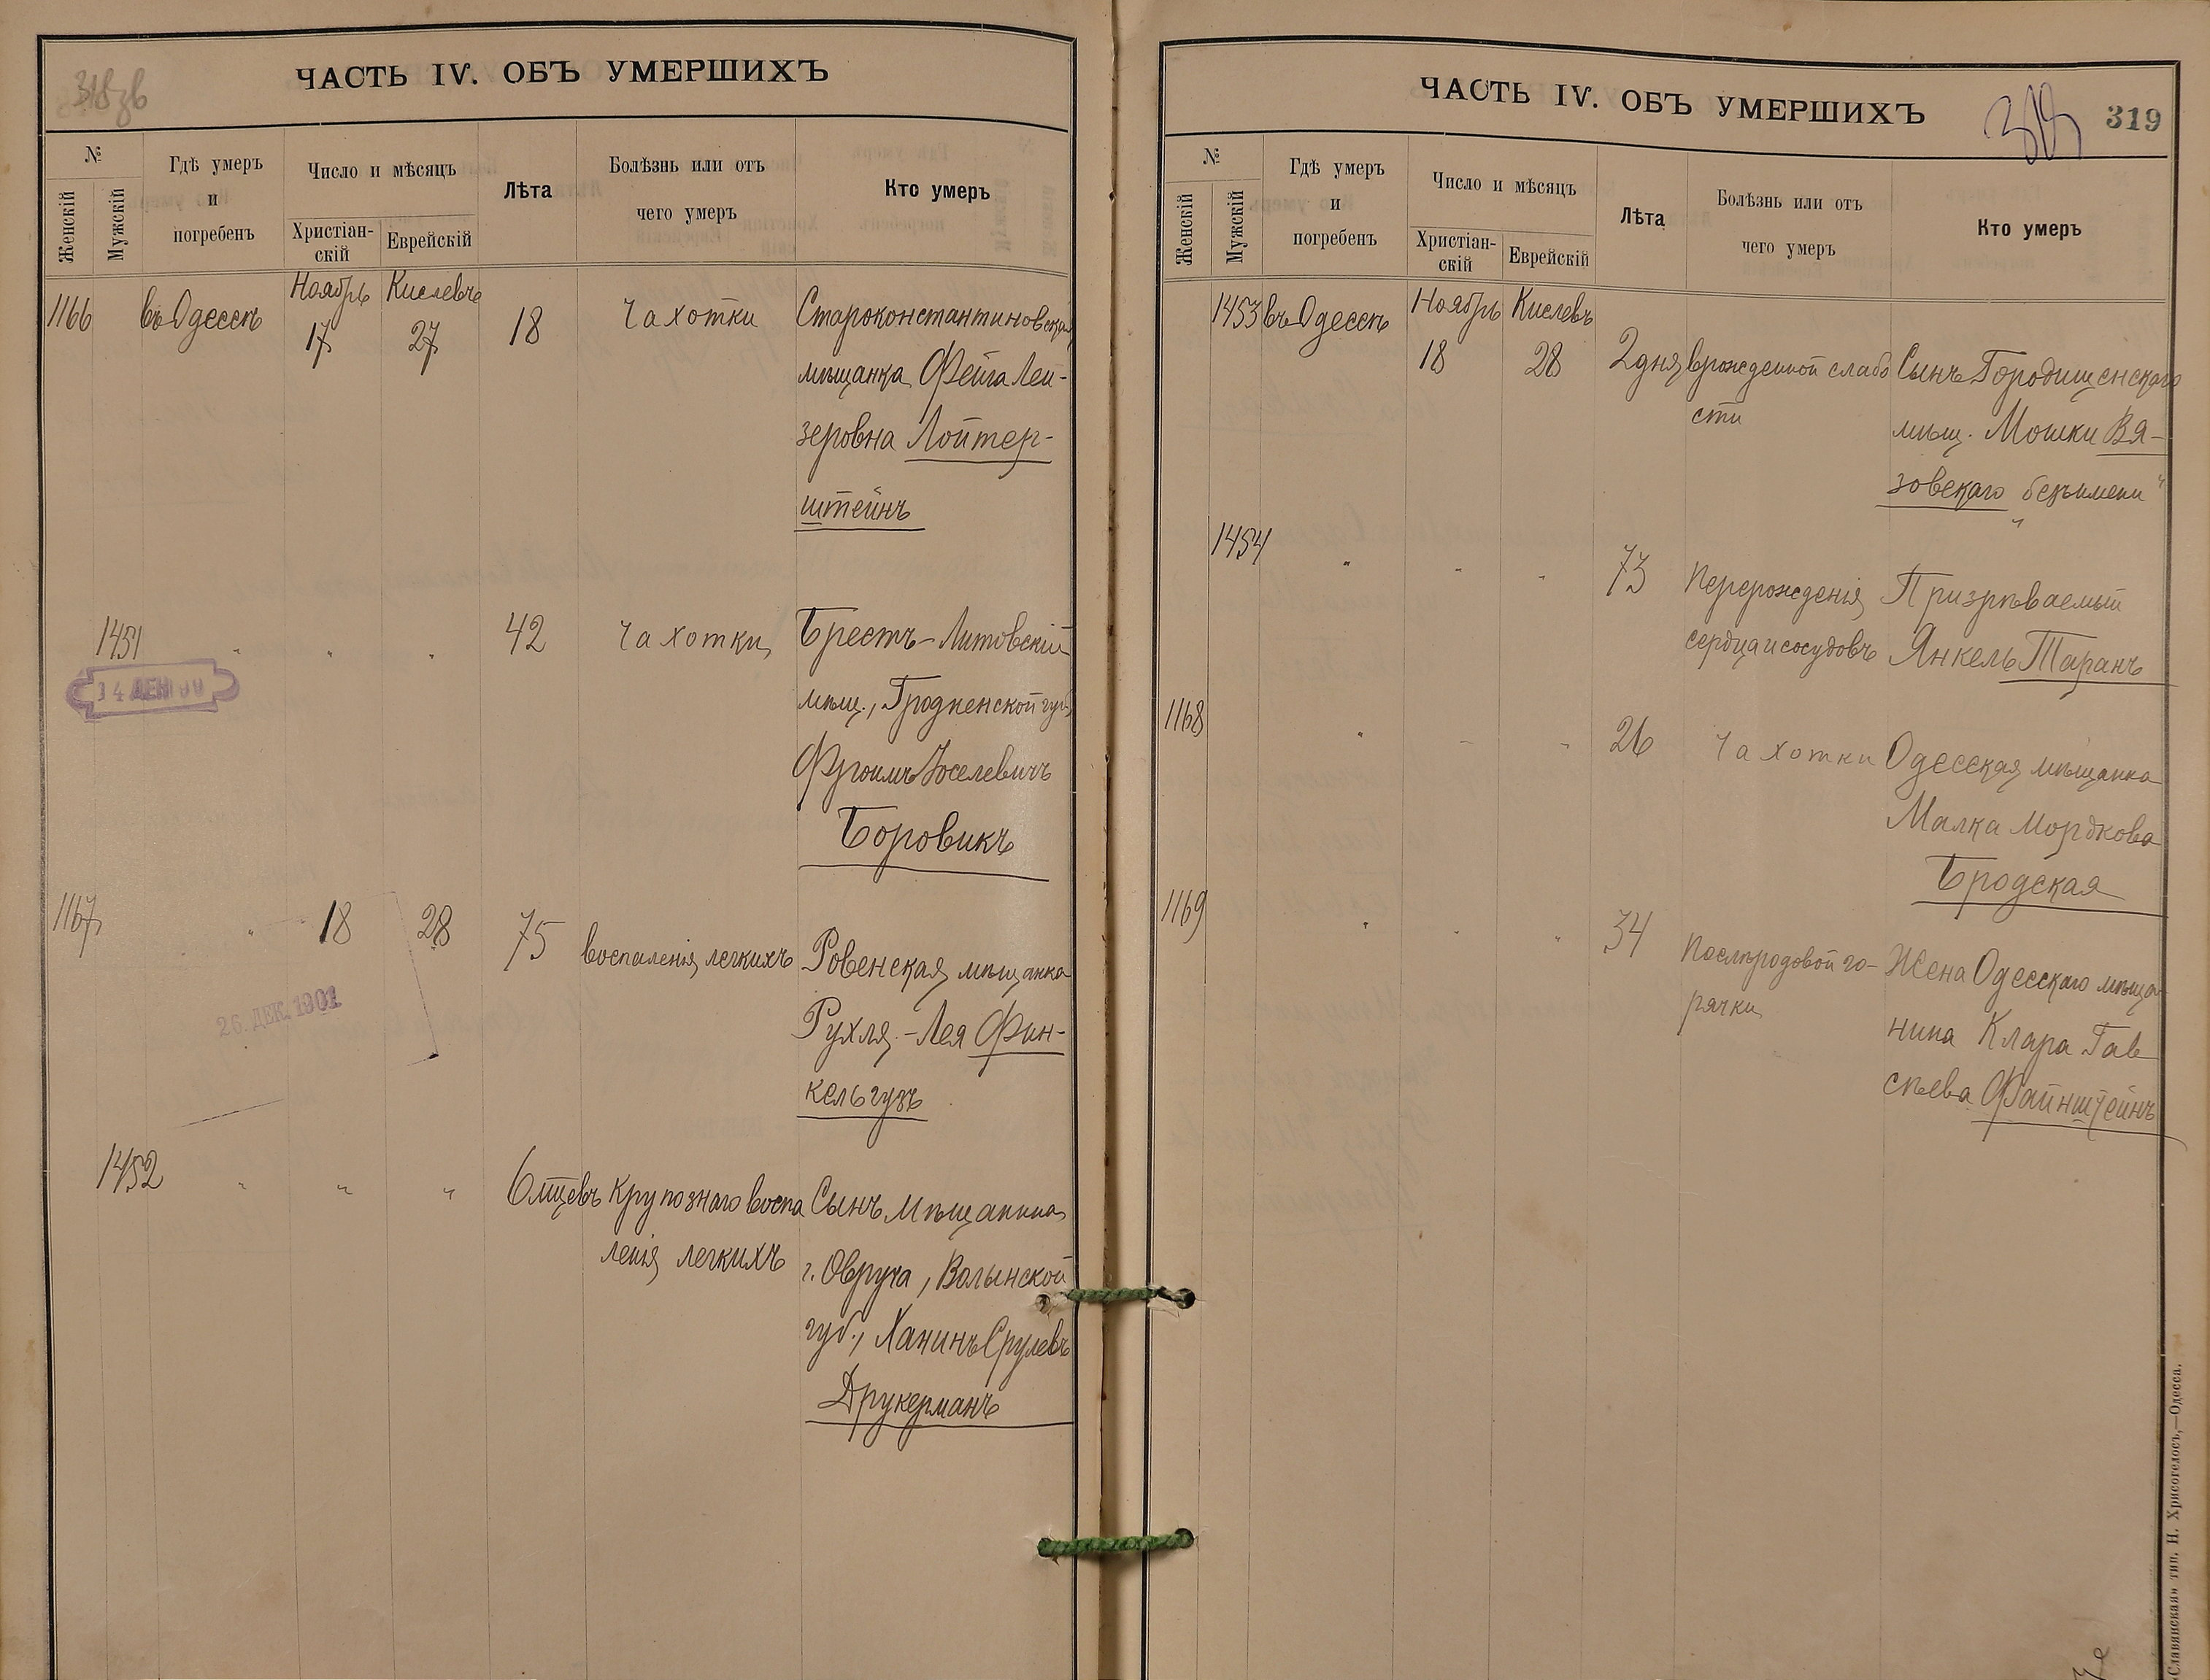 318 зв
ЧАСТЬ IV. ОБЪ УМЕРШИХЪ
№
Женскій
Мужскій
Гдѣ умеръ
и
погребенъ
Число и мѣсяцъ
Христіан-
скій
Еврейскій
Лѣта
Болѣзнь или отъ
чего умеръ
Кто умеръ
Ноябрь Кислевъ
1166 въ Одессѣ 17 27 18 Чахотки Староконстантиновская
мѣщанка Фейга Лей-
зеровна Лойтер-
штейнъ
1451 " " " 42 Чахотки Брестъ-Литовскій
мѣщ., Гродненской губ.,
Фроимъ Іоселевичъ
Боровикъ
14 ДЕК 99
1167 " 18 28 75 воспаленія легкихъ Ровенская мѣщанка
Рухля-Лея Фин-
кельгузъ
26. ДЕК. 1901
1452 " " " 6 мцевъ крупознаго воспа Сынъ мѣщанина
ленія легкихъ г. Овруча, Волынской
губ., Ханинъ Срулевъ
Друкерманъ
ЧАСТЬ IV. ОБЪ УМЕРШИХЪ
319
№
Женскій
Мужскій
Гдѣ умеръ
и
погребенъ
Число и мѣсяцъ
Христіан-
скій
Еврейскій
Лѣта
Болѣзнь или отъ
чего умеръ
Кто умеръ
Ноябрь Кислевъ
1453 въ Одессѣ 18 28 2 дня врожденной слабо Сынъ Городищенскаго
сти мѣщ. Мошки Вя-
зовскаго "безъ имени"
1454 " " " 73 Перерожденія Призрѣваемый
сердца и сосудовъ Янкель Таранъ
1168 " " " 26 Чахотки Одесская мѣщанка
Малка Мордкова
Бродская
1169 " " " 34 Послѣродовой го- Жена Одесскаго мѣща-
рячки нина Клара Гав
сѣева Файнштейнъ
«Славянская» тип. Н. Хрисогелосъ,—Одесса.